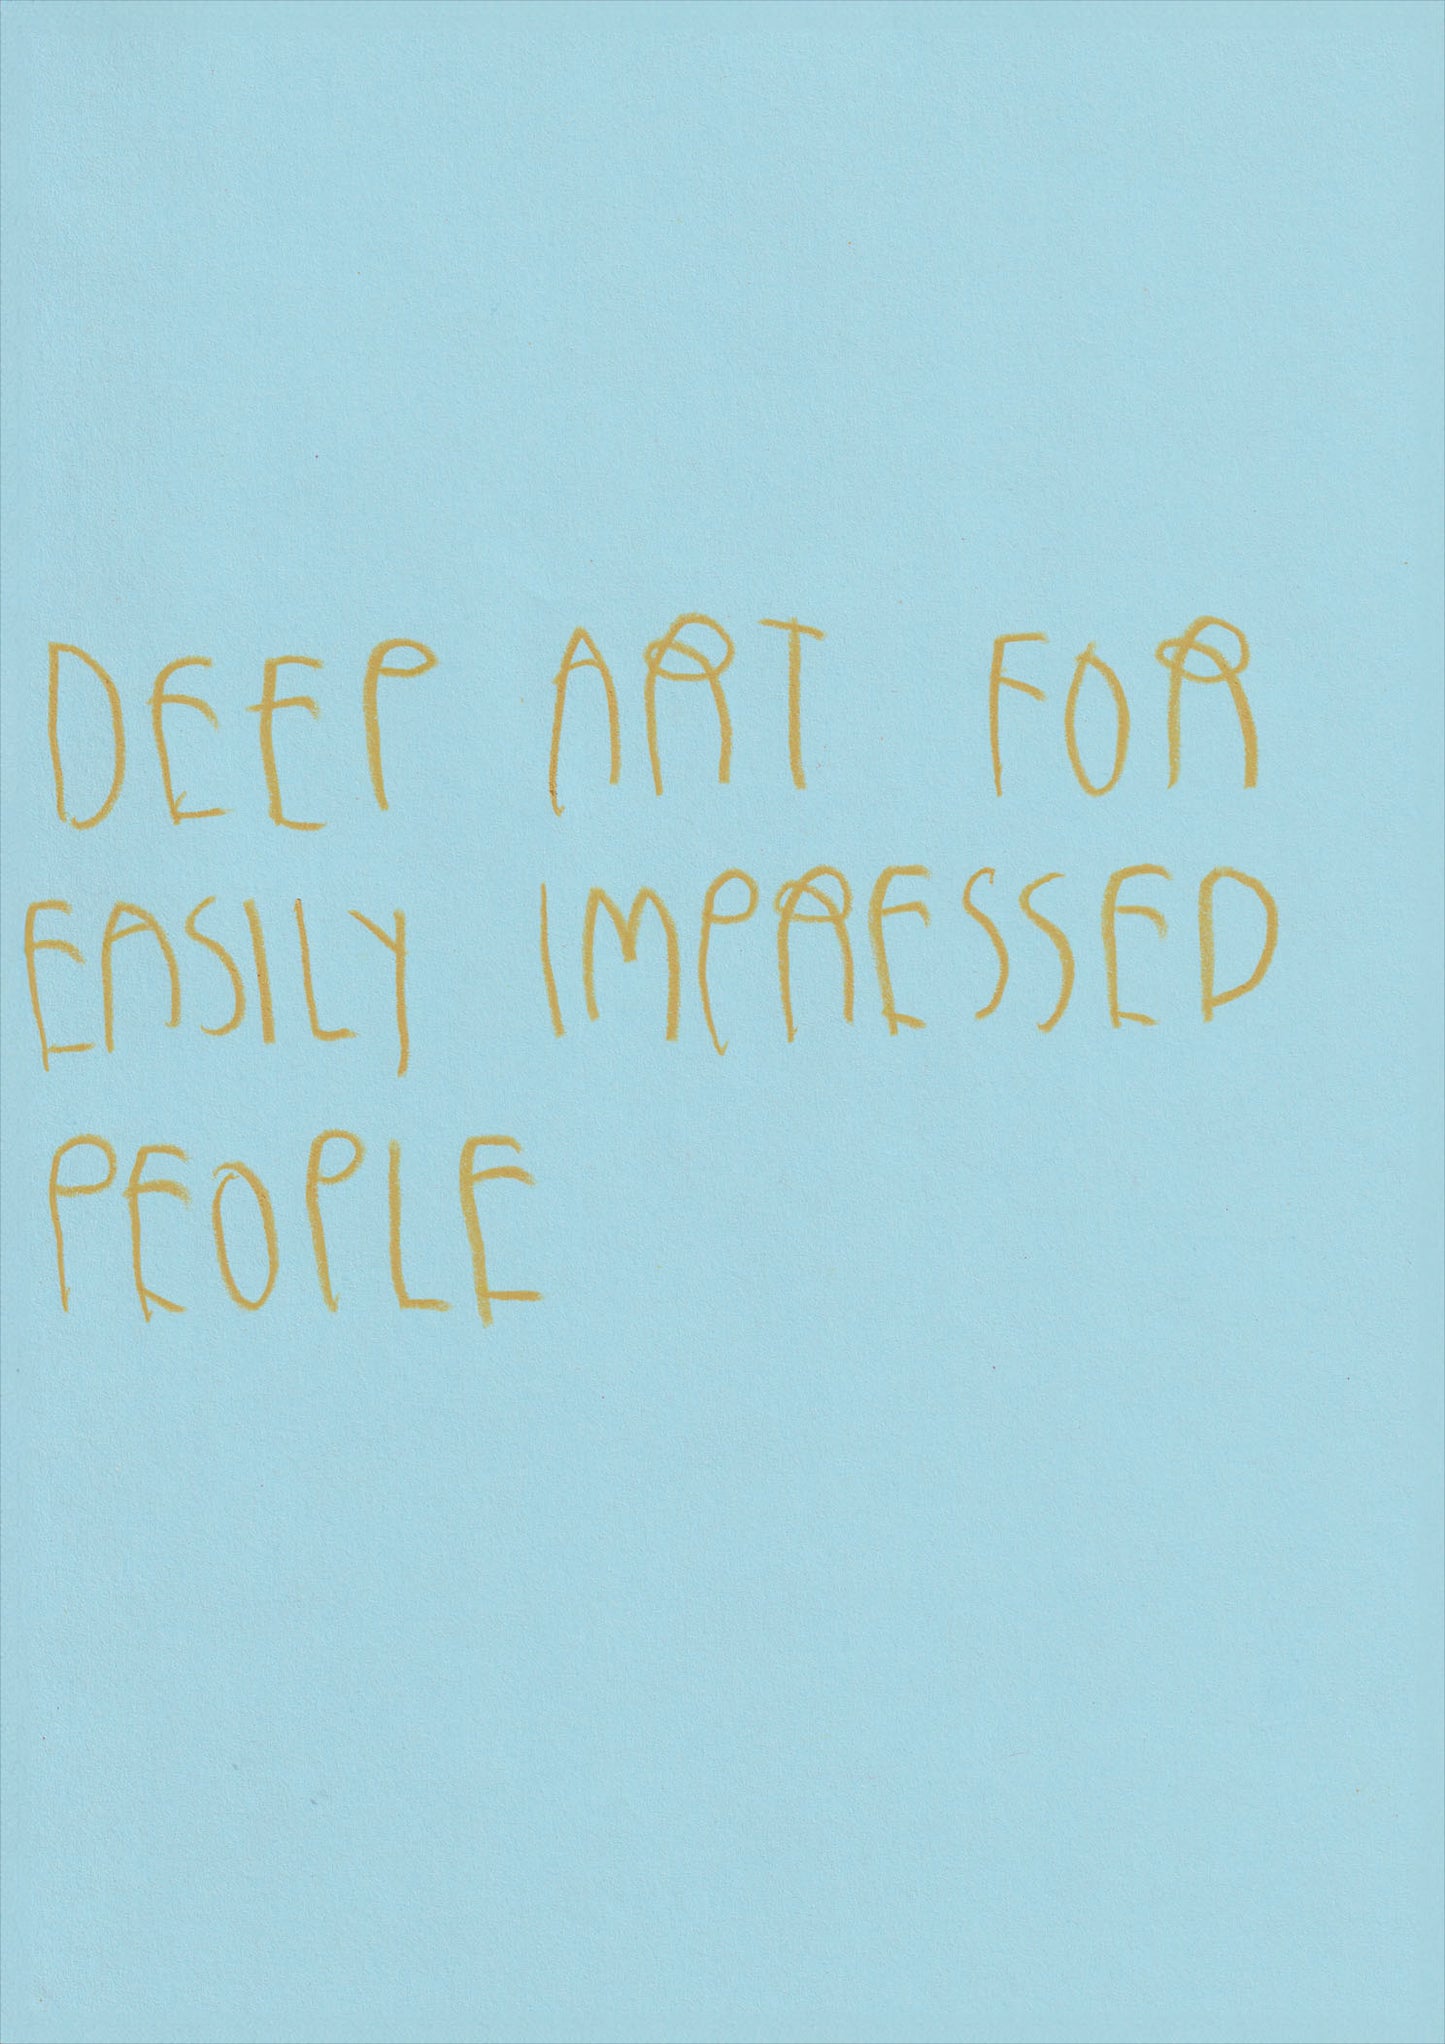 DEEP ART FOR
EASILY IMPRESSED
PEOPLE